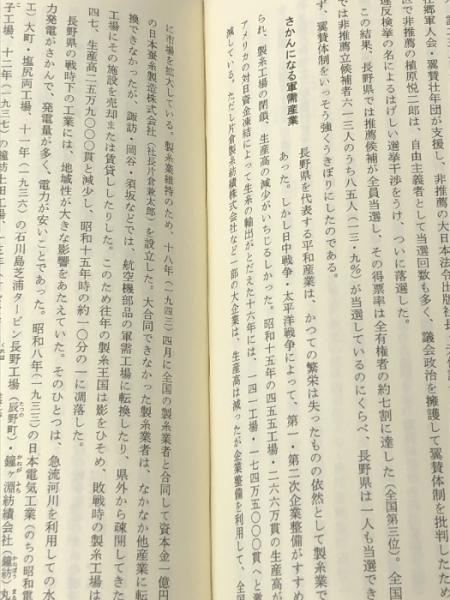 在郷軍人会・翼賛壮年団が支援し、非推薦の大日本法令出版社長
区で非推薦の植原悦二郎は、自由主義者として当選回数も多く、議会政治を擁護して翼賛体制を批判したため
違反検挙の名によるはげしい選挙干渉をうけ、ついに落選した。
この結果、長野県では推薦候補が全員当選し、その得票率は全有権者の約七割に達した（全国第三位）。全国
では非推薦立候補者六一三人のうち八五人（一三・九％）が当選しているのにくらべ、長野県は一人も当選でき
ず、翼賛体制をいっそう強くうきぼりにしたのである。
さかんになる軍需産業
長野県を代表する平和産業は、かつての繁栄は失ったものの依然として製糸業で
あった。しかし日中戦争・太平洋戦争によって、第一・第二次企業整備がすすめ
られ、製糸工場の閉鎖、生産高の減少がいちじるしかった。昭和十五年の四五五工場・二六六万貫の生産高が
アメリカの対日資金凍結によって生糸の輸出がとだえた十六年には、一四一工場・一七四万五〇〇〇貫へと激
減している。ただし片倉製糸紡績株式会社など一部の大企業は、生産高は減ったが企業整備を利用して、全国
に市場を拡大している。製糸業維持のため、十八年（一九四三）四月に全国の製糸業者と合同して資本金一億円
の日本蚕糸製造株式会社（社長片倉兼太郎）を設立した。大合同できなかった製糸業者は、なかなか他産業に転
換できなかったが、諏訪・岡谷・須坂などでは、航空機部品の軍需工場に転換したり、県外から疎開してきた
工場にその施設を売却または賃貸ししたりした。このため往年の製糸王国は影をひそめ、敗戦時の製糸工場は
四七、生産高二五万九〇〇〇貫と減少し、昭和十五年時の約一〇分の一に凋落した。
長野県の戦時下の工業には、地域性が大きな影響をあたえていた。そのひとつは、急流河川を利用しての水
力発電がさかんで、発電量が多く、電力が安いことであった。昭和八年（一九三三）の日本電気工業（のちの昭和電
工）大町・塩尻両工場、十一年（一九三六）の石川島芝浦タービン辰野工場（辰野町）・鐘ヶ淵紡績会社（鐘紡）丸
子工場、十二年（一九三七）の鐘紡上田工場、